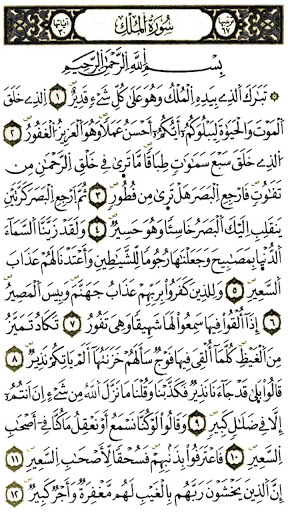 ترتيبها ٦٧ سُورَةُ الْمُلْكِ آياتها ٣٠
بِسْمِ اللَّهِ الرَّحْمَٰنِ الرَّحِيمِ
تَبَارَكَ الَّذِي بِيَدِهِ الْمُلْكُ وَهُوَ عَلَىٰ كُلِّ شَيْءٍ قَدِيرٌ ١ الَّذِي خَلَقَ
الْمَوْتَ وَالْحَيَوٰةَ لِيَبْلُوَكُمْ أَيُّكُمْ أَحْسَنُ عَمَلًا وَهُوَ الْعَزِيزُ الْغَفُورُ ٢
الَّذِي خَلَقَ سَبْعَ سَمٰوَاتٍ طِبَاقًا مَا تَرَىٰ فِي خَلْقِ الرَّحْمَٰنِ مِنْ
تَفَاوُتٍ فَارْجِعِ الْبَصَرَ هَلْ تَرَىٰ مِنْ فُطُورٍ ٣ ثُمَّ ارْجِعِ الْبَصَرَ كَرَّتَيْنِ
يَنْقَلِبْ إِلَيْكَ الْبَصَرُ خَاسِئًا وَهُوَ حَسِيرٌ ٤ وَلَقَدْ زَيَّنَّا السَّمَاءَ
الدُّنْيَا بِمَصَابِيحَ وَجَعَلْنَاهَا رُجُومًا لِلشَّيَاطِينِ وَأَعْتَدْنَا لَهُمْ عَذَابَ
السَّعِيرِ ٥ وَلِلَّذِينَ كَفَرُوا بِرَبِّهِمْ عَذَابُ جَهَنَّمَ وَبِئْسَ الْمَصِيرُ
٦ إِذَا أُلْقُوا فِيهَا سَمِعُوا لَهَا شَهِيقًا وَهِيَ تَفُورُ ٧ تَكَادُ تَمَيَّزُ
مِنَ الْغَيْظِ كُلَّمَا أُلْقِيَ فِيهَا فَوْجٌ سَأَلَهُمْ خَزَنَتُهَا أَلَمْ يَأْتِكُمْ نَذِيرٌ ٨
قَالُوا بَلَىٰ قَدْ جَاءَنَا نَذِيرٌ فَكَذَّبْنَا وَقُلْنَا مَا نَزَّلَ اللَّهُ مِنْ شَيْءٍ إِنْ أَنْتُمْ
إِلَّا فِي ضَلَالٍ كَبِيرٍ ٩ وَقَالُوا لَوْ كُنَّا نَسْمَعُ أَوْ نَعْقِلُ مَا كُنَّا فِي أَصْحَابِ
السَّعِيرِ ١٠ فَاعْتَرَفُوا بِذَنْبِهِمْ فَسُحْقًا لِأَصْحَابِ السَّعِيرِ ١١
إِنَّ الَّذِينَ يَخْشَوْنَ رَبَّهُمْ بِالْغَيْبِ لَهُمْ مَغْفِرَةٌ وَأَجْرٌ كَبِيرٌ ١٢